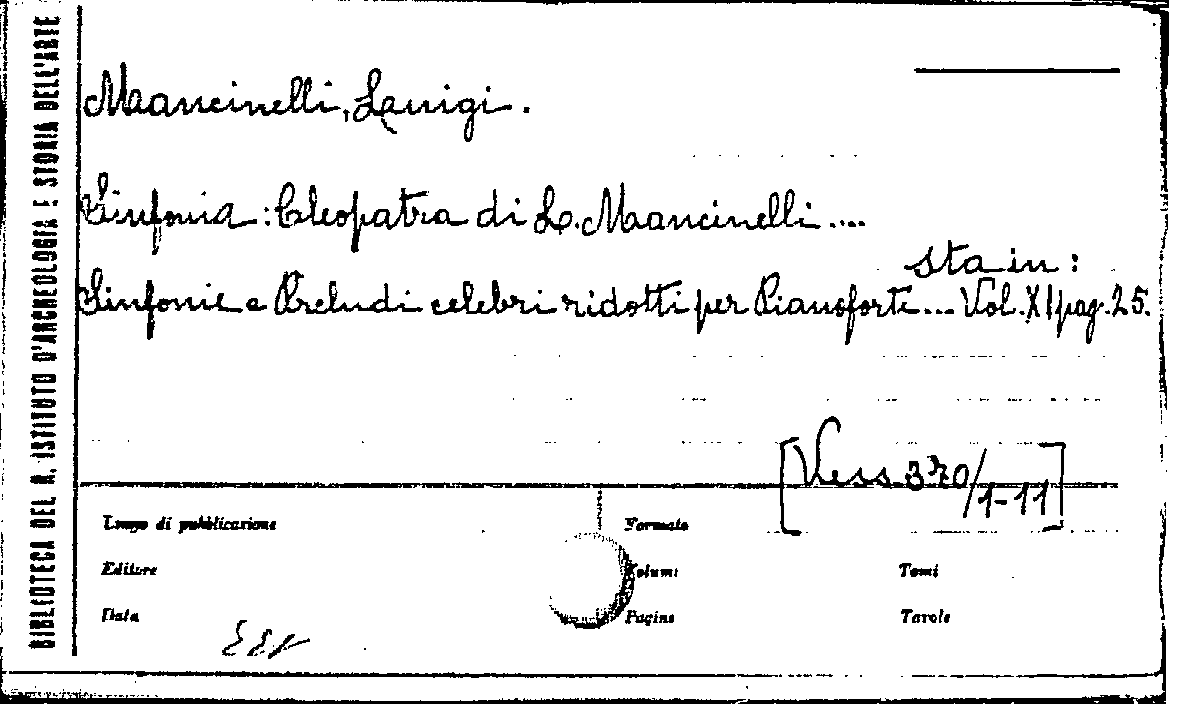 BIBLIOTECA DEL R. ISTITUTO D'ARCHEOLOGIA E STORIA DELL'ARTE
Mancinelli, Luigi.
Sinfonia: Cleopatra di L. Mancinelli....
sta in:
Sinfonie e Preludi celebri ridotti per Pianoforte... Vol. XI pag. 25.
[Vess. 370/1-11]
Luogo di pubblicazione
Formato
Editore
Volumi
Tomi
Data
Pagine
Tavole